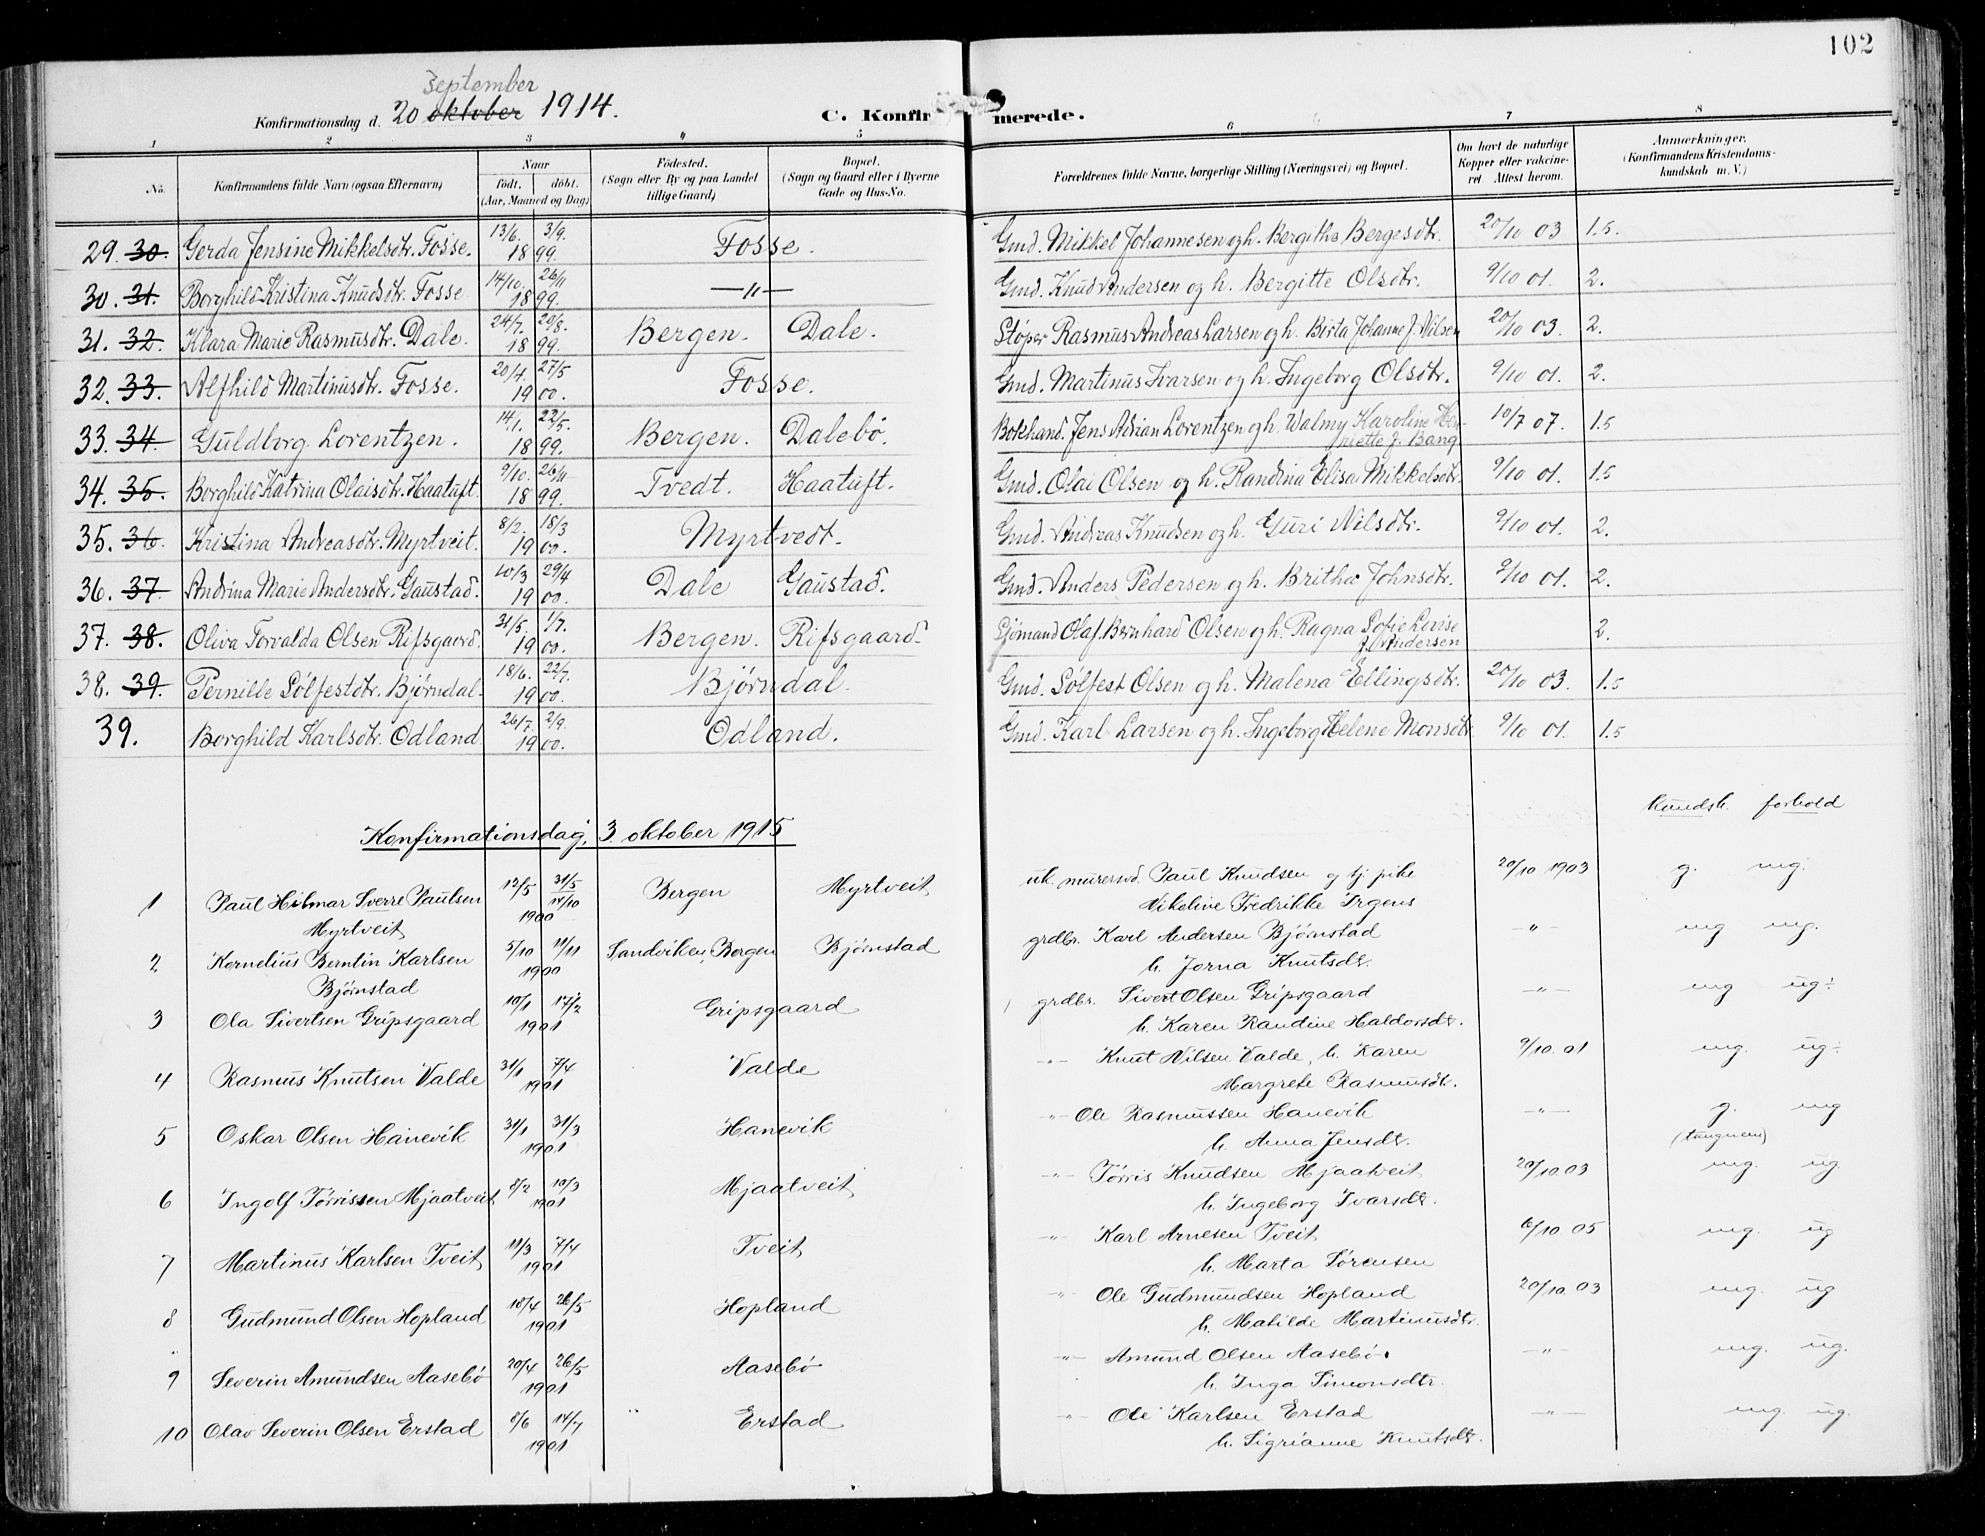 102
September
Konfirmationsdag d. 20 oktober 1914.
C. Konfirmerede.
1 2 3 4 5 6 7 8
No. Konfirmandens fulde Navn (ogsaa Efternavn) Naar født, døbt. (Aar, Maaned og Dag) Fødested. (Sogn eller By og paa Landet tillige Gaard) Bopæl. (Sogn og Gaard eller i Byerne Gade og Hus-No. Forældrenes fulde Navne, borgerlige Stilling (Næringsvei) og Bopæl. Om havt de naturlige Kopper eller vakcineret Attest herom. Anmærkninger. (Konfirmandens Kristendomskundskab m. V.)
29. 30. Gerda Jensine Mikkelsdtr. Fosse. 13/6. 3/9. 1899. Fosse. Gmd. Mikkel Johannesen og h. Bergitha Bergesdtr. 20/10 03 1.5.
30. 31. Borghild Kristina Knudsdtr. Fosse 14/10. 26/11 1899. —"— Gmd. Knud Andersen og h. Bergitte Olsdtr. 9/10 01. 2.
31. 32. Klara Marie Rasmusdtr. Dale. 24/7. 20/8. 1899. Bergen. Dale. Støper Rasmus Andreas Larsen og h. Birta Johanne f. Nilsen 20/10 03. 2.
32. 33. Alfhild Martinusdtr. Fosse. 20/4 27/5 1900. Fosse. Gmd. Martinus Ivarsen og h. Ingeborg Olsdtr. 9/10 01. 2.
33. 34. Guldborg Lorentzen. 14/1. 22/5. 1899. Bergen. Dalebö. Bokhand. Jens Adrian Lorentzen og h. Walmy Karoline Henriette f. Bang 10/7 07. 1.5
34. 35. Borghild Katrina Olaisdtr. Haatuft. 9/10. 26/11 1899. Tvedt. Haatuft. Gmd. Olai Olsen og h. Randina Elisa Mikkelsdtr. 9/10 01. 1.5
35. 36. Kristina Andreasdtr. Myrtveit. 8/2. 18/3 1900. Myrtvedt. Gmd. Andreas Knudsen og h. Guri Nilsdtr. 9/10 01. 2.
36. 37. Andrina Marie Andersdtr. Gaustad. 10/3 29/4 1900. Dale Gaustad. Gmd. Anders Pedersen og h. Britha Johnsdtr. 9/10 01. 2.
37. 38. Oliva Torvalda Olsen Rifsgaard. 31/5. 1/7. 1900. Bergen. Rifsgaard. Sjömand Olaf Bernhard Olsen og h. Ragna Sofie Lovise f. Andersen 2.
38. 39. Pernille Sølfestdtr. Björndal. 18/6. 22/7. 1900. Björndal. Gmd. Sølfest Olsen og h. Malena Ellingsdtr. 20/10 03. 1.5
39. Borghild Karlsdtr. Odland. 26/7. 2/9. 1900. Odland. Gmd. Karl Larsen og h. Ingeborg Helene Monsdtr 9/10 01. 1.5
kundsk. forhold
Konfirmationsdag, 3. oktober 1915
1 Paul Hilmar Sverre Paulsen 12/5 31/5 14/10 Bergen Myrtveit uk. murersvd. Paul Knudsen og tj. pike 20/10 1903 g. mg.
Myrtveit 1900 Nikoline Fredrikke Irgens
2 Kornelius Berntin Karlsen 5/10 11/11 Sandviken, Bergen Bjørnstad grdbr. Karl Andersen Bjørnstad —"— mg mg.
Bjørnstad 1900 h. Jorna Knutsdtr.
3 Ola Sivertsen Gripsgaard 10/1 17/2 1901 Gripsgaard grdbr. Sivert Olsen Gripsgaard —"— mg ug÷
h. Karen Randine Haldorsdtr.
4 Rasmus Knutsen Valde 31/1 7/4 1901 Valde —"— Knut Nilsen Valde, h. Karen 9/10.01 mg. ug÷
Margrete Rasmusdtr.
5 Oskar Olsen Hanevik 31/1 31/3 1901 Hanevik —"— Ole Rasmussen Hanevik —"— g. mg
h. Anna Jensdtr. (tungnem)
6 Ingolf Tørrissen Mjaatveit 8/2 10/3 1901 Mjaatveit —"— Tørris Knudsen Mjaatveit 20/10.03 mg. ug.
h. Ingeborg Ivarsdtr.
7 Martinus Karlsen Tveit 11/3 7/4 1901 Tveit —"— Karl Arnesen Tveit 6/10 05 mg. ug
h. Marta Sørensen
8 Gudmund Olsen Hopland 18/4 26/5 1901 Hopland —"— Ole Gudmundsen Hopland 20/10.03 mg. ug
h. Matilde Martinusdtr.
9 Severin Amundsen Aasebø 20/4 26/5 1901 Aasebø —"— Amund Olsen Aasebø. —"— mg. ug.
h. Inga Simonsdtr.
10 Olav Severin Olsen Erstad 8/6 14/7 1901 Erstad —"— Ole Karlsen Erstad —"— mg. ug.
h. Sigrianne Knutsdtr.